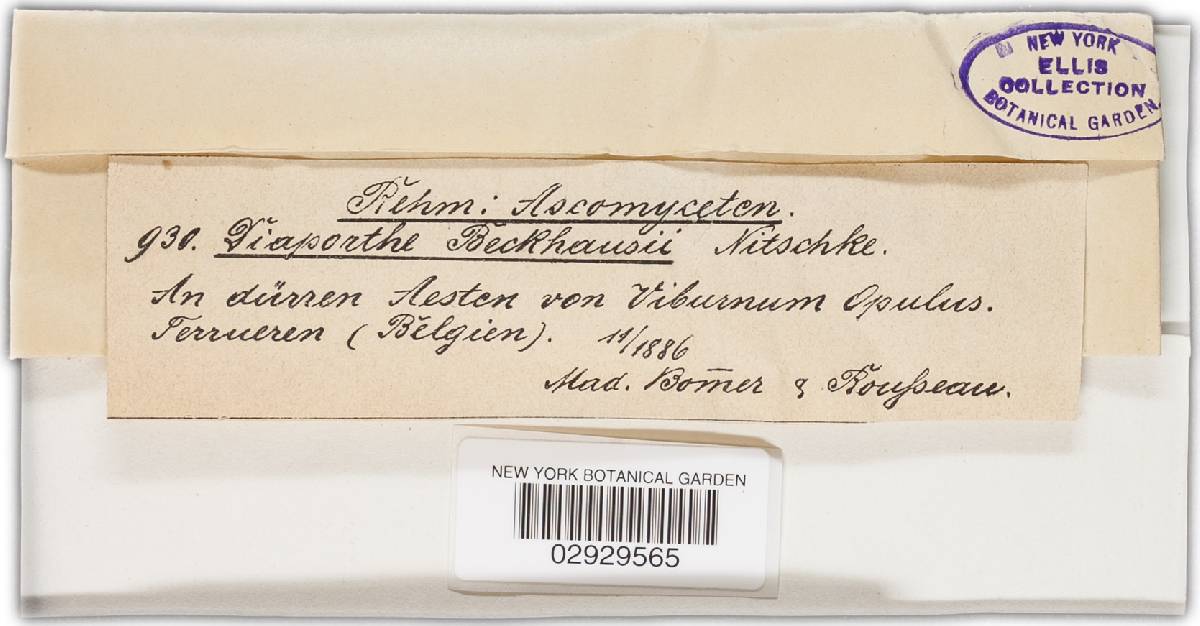 NEW YORK
ELLIS
COLLECTION
BOTANICAL GARDEN
Rehm: Ascomyceten.
930. Diaporthe Beckhausii Nitschke.
An dürren Aesten von Viburnum Opulus.
Terrueren (Belgien). 11/1886
Mad. Bom̅er & Rousseau.
NEW YORK BOTANICAL GARDEN
02929565